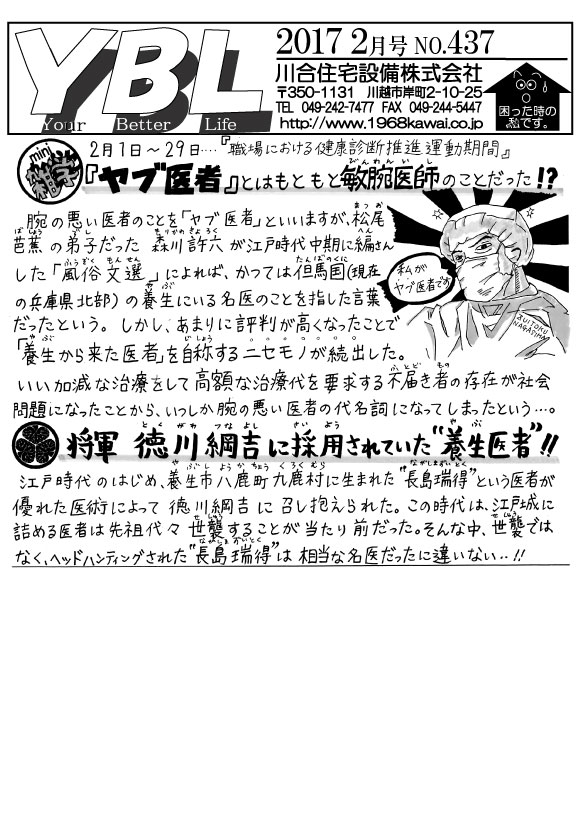 YBL
Your Better Life
2017 2月号 NO.437
川合住宅設備株式会社
〒350-1131 川越市岸町2-10-25
TEL 049-242-7477 FAX 049-244-5447
http://www.1968kawai.co.jp
困った時の
私です。
mini
雑学
2月1日〜29日‥‥『職場における健康診断推進運動期間』
『ヤブ医者』とはもともと敏腕医師のことだった!?
腕の悪い医者のことを「ヤブ医者」といいますが、松尾
芭蕉の弟子だった 森川許六が江戸時代中期に編さん
した「風俗文選」によれば、かつては但馬国(現在
の兵庫県北部)の養生にいる名医のことを指した言葉
だったという。しかし、あまりに評判が高くなったことで
「養生から来た医者」を自称するニセモノが続出した。
いい加減な治療をして高額な治療代を要求する不届き者の存在が社会
問題になったことから、いつしか腕の悪い医者の代名詞になってしまったという…。
私が
ヤブ医者です
ZUITOKU
NAGASIMA
将軍 徳川綱吉に採用されていた"養生医者"!!
江戸時代のはじめ、養生市八鹿町九鹿村に生まれた"長島瑞得"という医者が
優れた医術によって徳川綱吉に召し抱えられた。この時代は、江戸城に
詰める医者は先祖代々世襲することが当たり前だった。そんな中、世襲では
なく、ヘッドハンティングされた"長島瑞得"は相当な名医だったに違いない‥!!